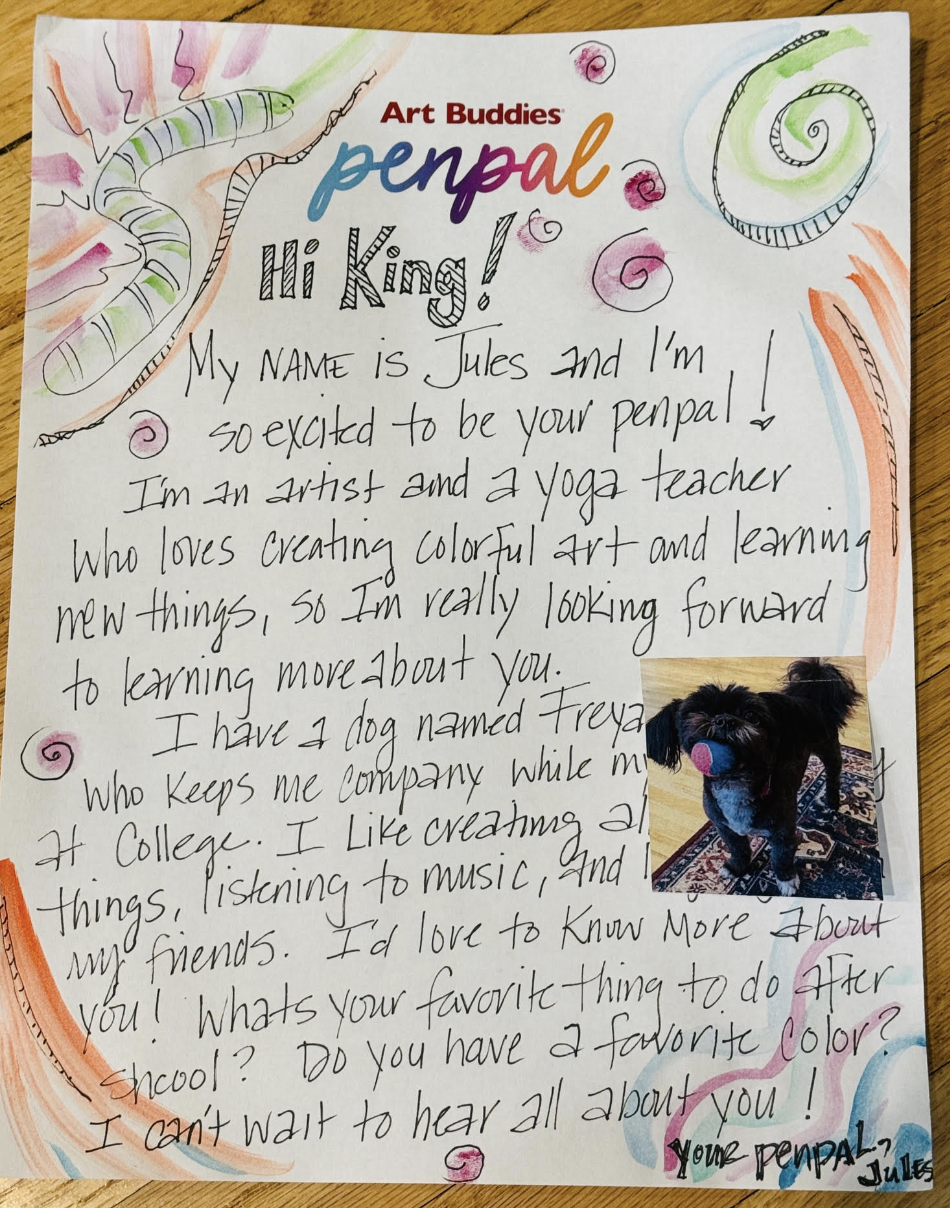 Art Buddies
penpal
Hi King!
My NAME is Jules and I'm
so excited to be your penpal!
I'm an artist and a yoga teacher
who loves creating colorful art and learning
new things, so I'm really looking forward
to learning more about you.
I have a dog named Freya
who keeps me company while
at College. I Like creating
things, listening to music, and
my friends. I'd love to know More about
you! Whats your favorite thing to do after
shcool? Do you have a favorite color?
I can't wait to hear all about you!
Your penpal,
Jules